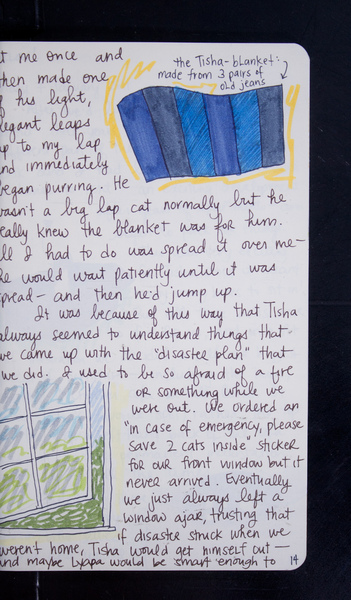 the Tisha-blanket:
made from 3 pairs of
old jeans
t me once and
then made one
f his light,
legant leaps
up to my lap
nd immediately
began purring. He
wasn't a big lap cat normally but he
eally knew the blanket was for him.
ll I had to do was spread it over me-
he would wait patiently until it was
spread - and then he'd jump up.
It was because of this way that Tisha
always seemed to understand things that
we came up with the "disaster plan" that
we did. I used to be so afraid of a fire
or something while we
were out. We ordered an
"in case of emergency, please
save 2 cats inside" sticker
for our front window but it
never arrived. Eventually
we just always left a
window ajar, trusting that
if disaster struck when we
weren't home, Tisha would get himself out -
and maybe would be smart enough to
14